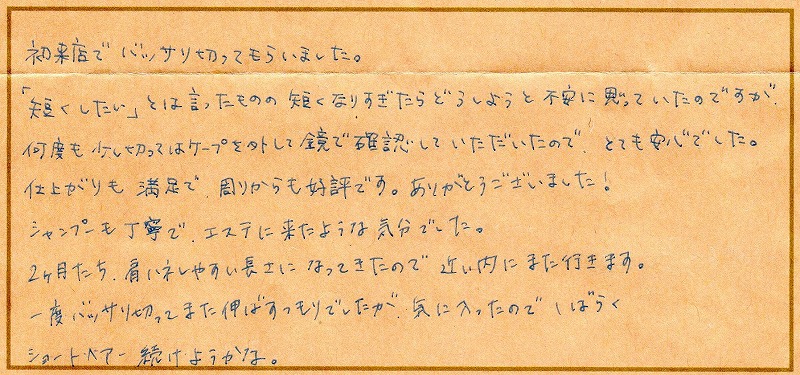 初来店でバッサリ切ってもらいました。
「短くしたい」とは言ったものの短くなりすぎたらどうしようと不安に思っていたのですが、
何度も少し切ってはケープを外して鏡で確認していただいたので、とても安心でした。
仕上がりも満足で、周りからも好評です。ありがとうございました！
シャンプーも丁寧で、エステに来たような気分でした。
2ヶ月たち、肩ハネしやすい長さになってきたので近い内にまた行きます。
一度バッサリ切ってまた伸ばすつもりでしたが、気に入ったのでしばらく
ショートヘアー続けようかな。